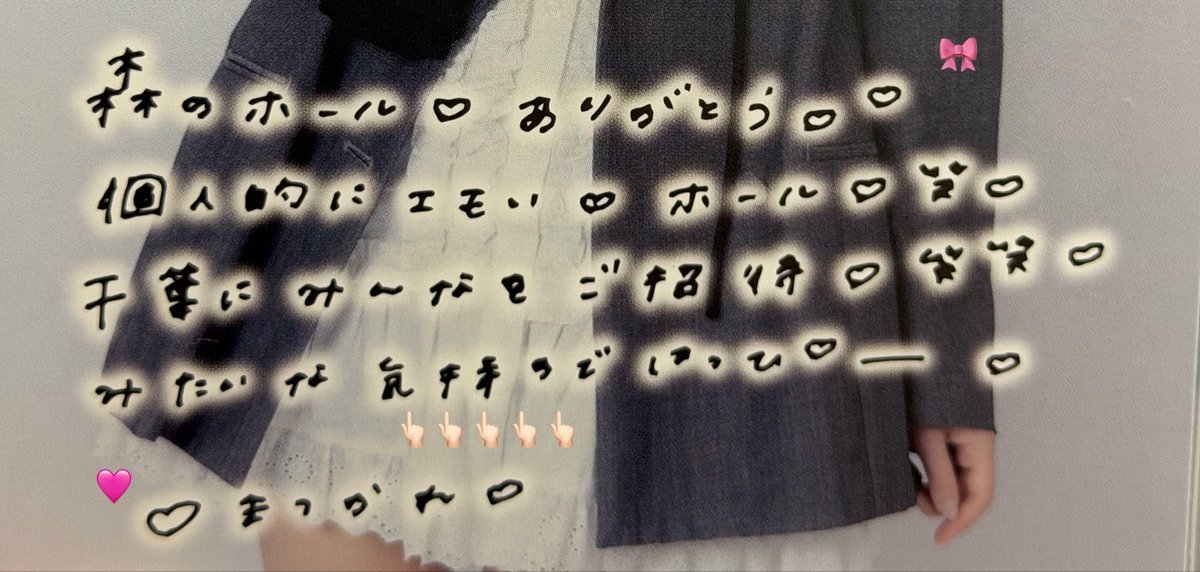 森のホール♡ ありがとう。♡♡
個人的にエモい♡ ホール♡ 笑♡
千葉にみ〜なをご招待♡ 笑笑♡
みたいな 気持
♡まつかれ♡